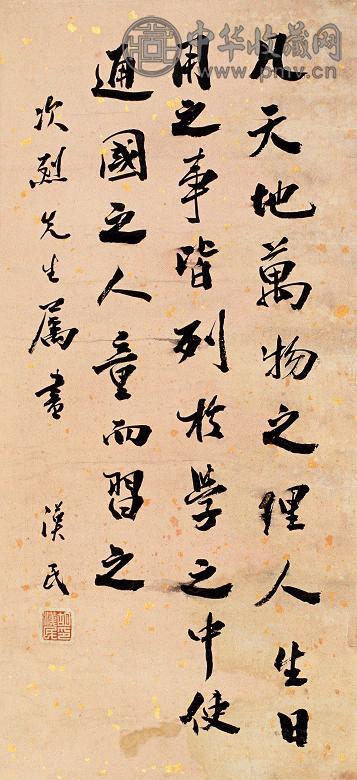 中华收藏网
www.pmv.cn
凡天地萬物之理人生日
用之事皆列於學之中使
通國之人童而習之
次烈先生屬書
漢民